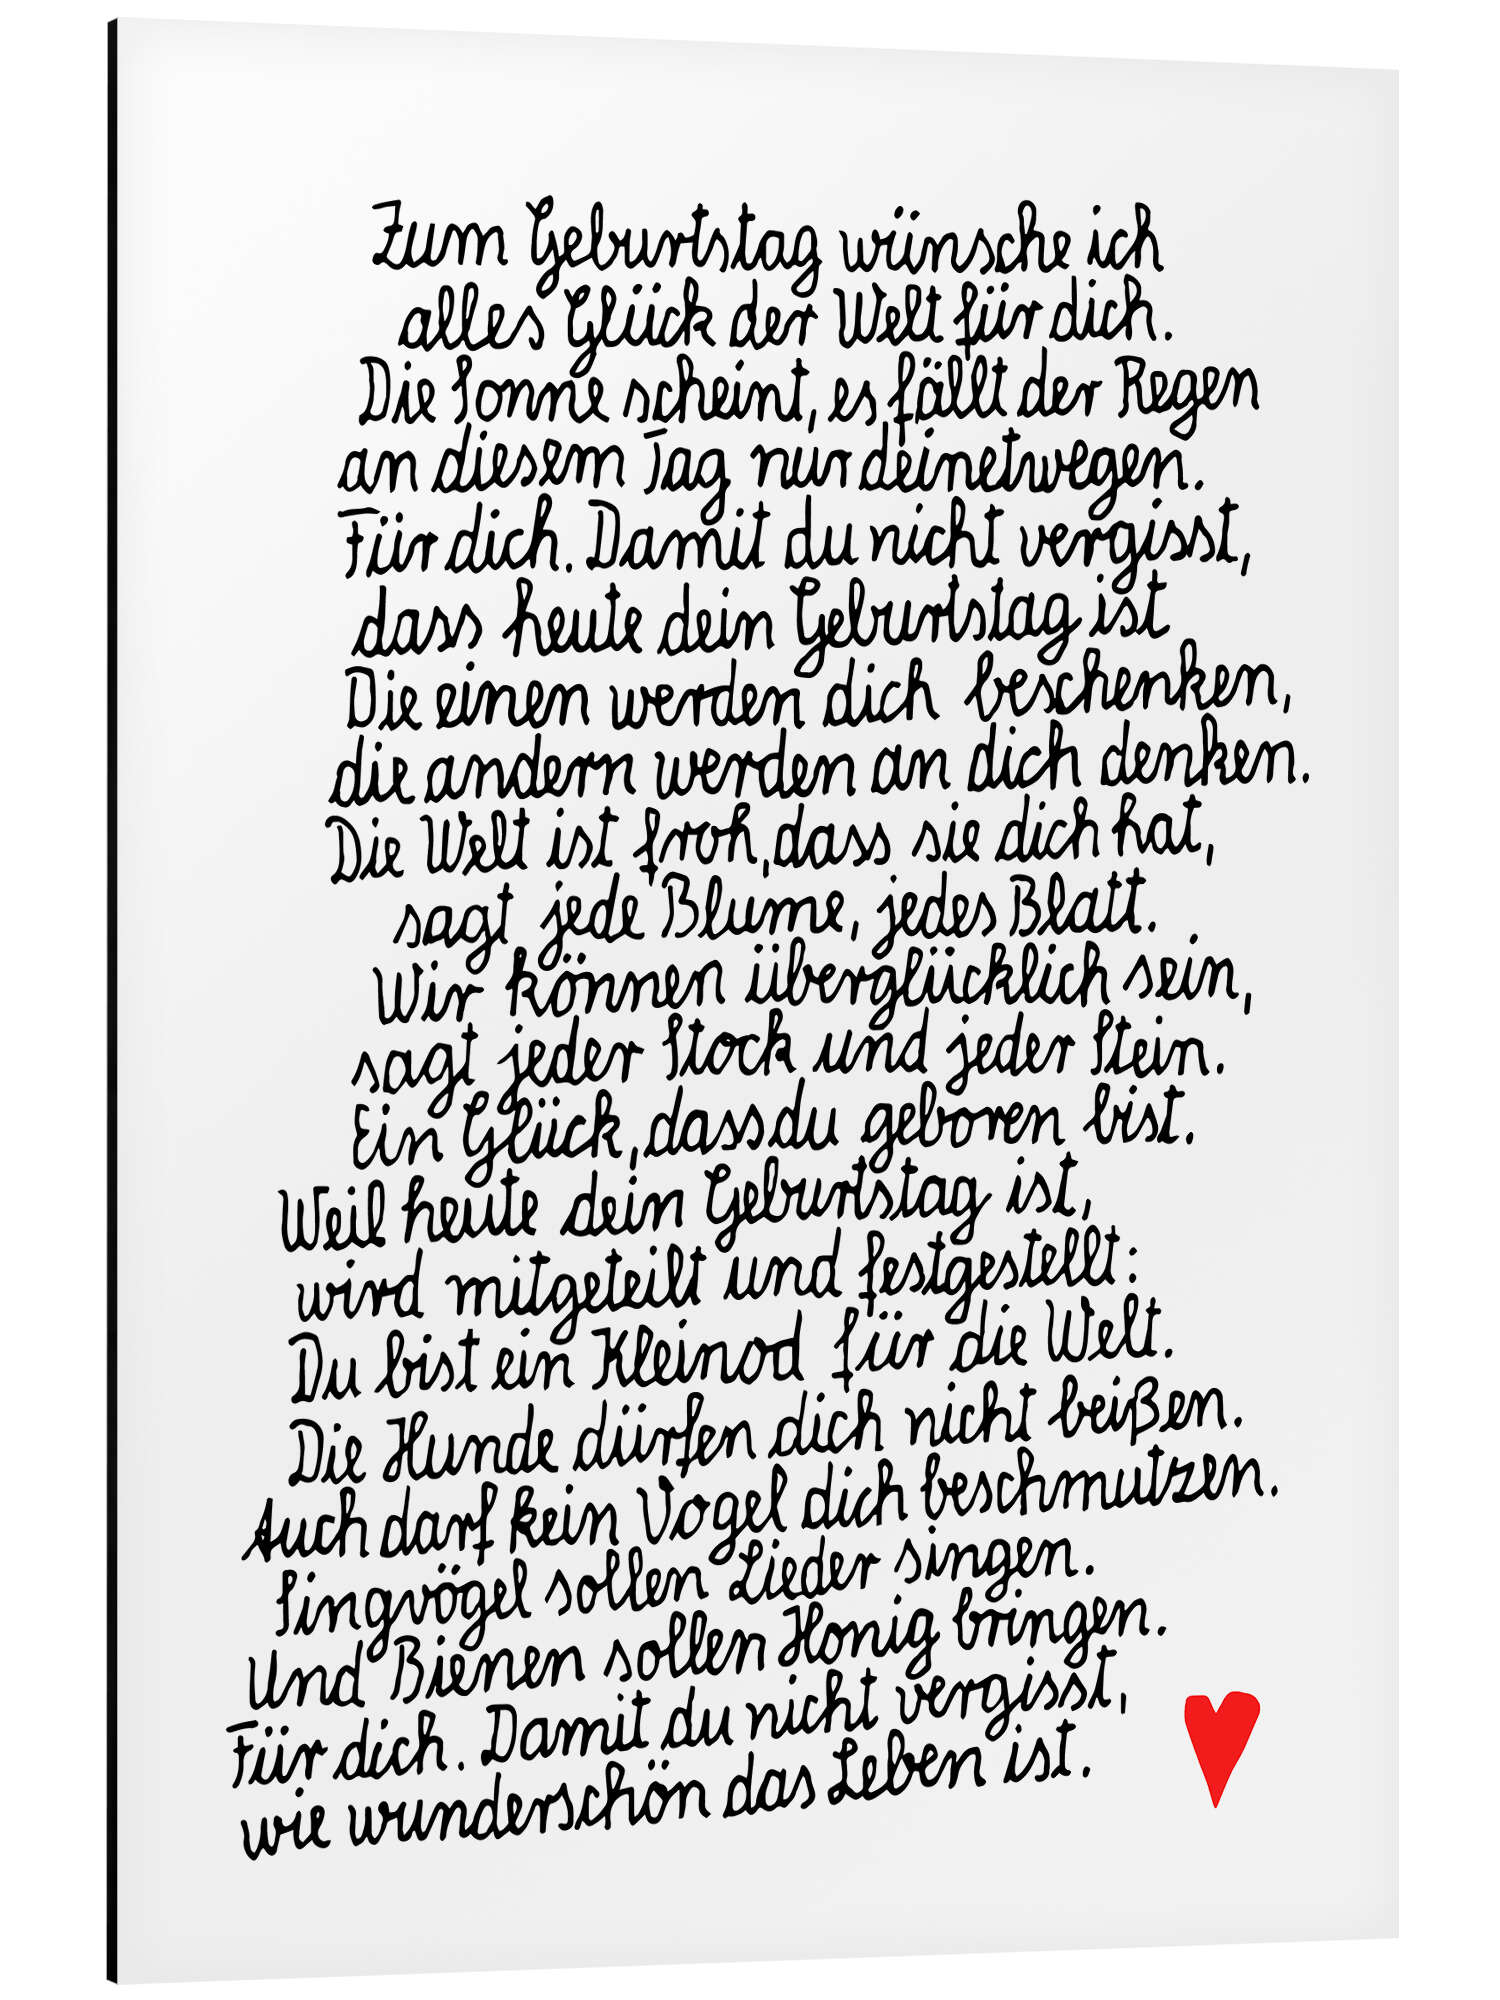 Zum Geburtstag wünsche ich
alles Glück der Welt für dich.
Die Sonne scheint, es fällt der Regen
an diesem Tag nur deinetwegen.
Für dich. Damit du nicht vergisst,
dass heute dein Geburtstag ist
Die einen werden dich beschenken,
die andern werden an dich denken.
Die Welt ist froh, dass sie dich hat,
sagt jede Blume, jedes Blatt.
Wir können überglücklich sein,
sagt jeder Stock und jeder Stein.
Ein Glück, dass du geboren bist.
Weil heute dein Geburtstag ist,
wird mitgeteilt und festgestellt:
Du bist ein Kleinod für die Welt.
Die Hunde dürfen dich nicht beißen.
Auch darf kein Vogel dich beschmutzen.
Singvögel sollen Lieder singen.
Und Bienen sollen Honig bringen.
Für dich. Damit du nicht vergisst,
wie wunderschön das Leben ist.